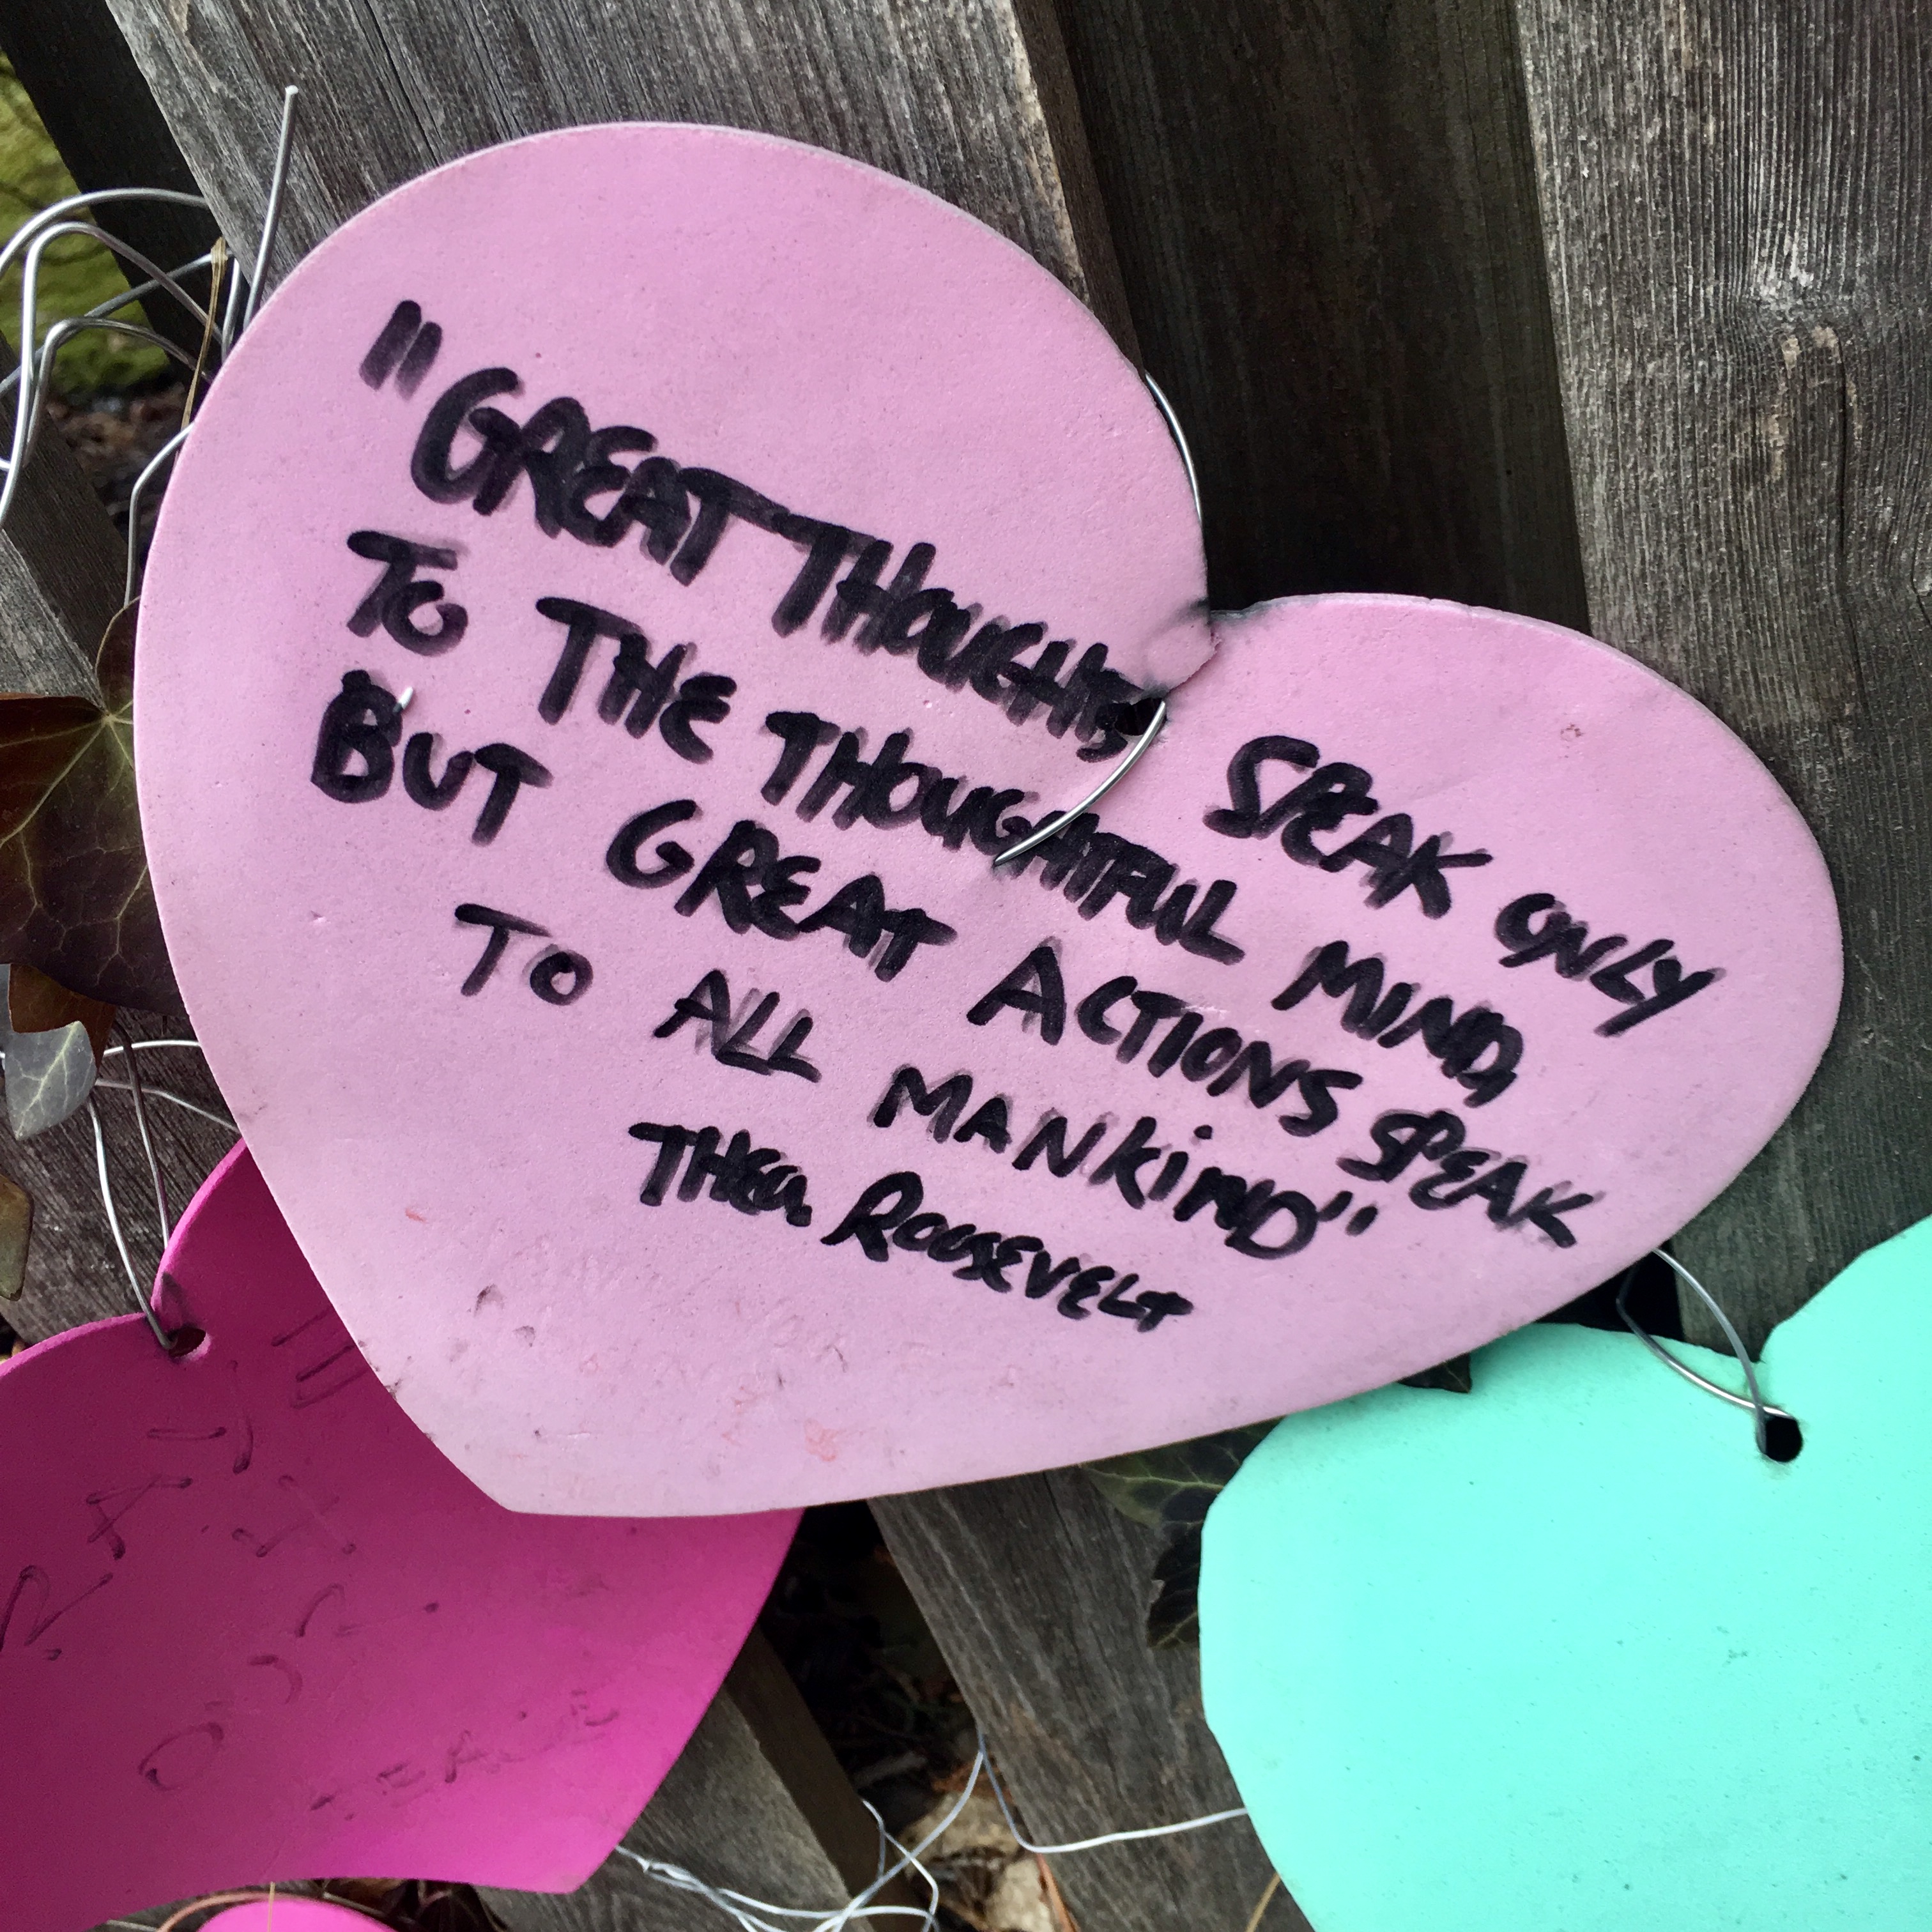 "GREAT THOUGHTS SPEAK ONLY
TO THE THOUGHTFUL MIND,
BUT GREAT ACTIONS SPEAK
TO ALL MANKIND"
THEO. ROOSEVELT